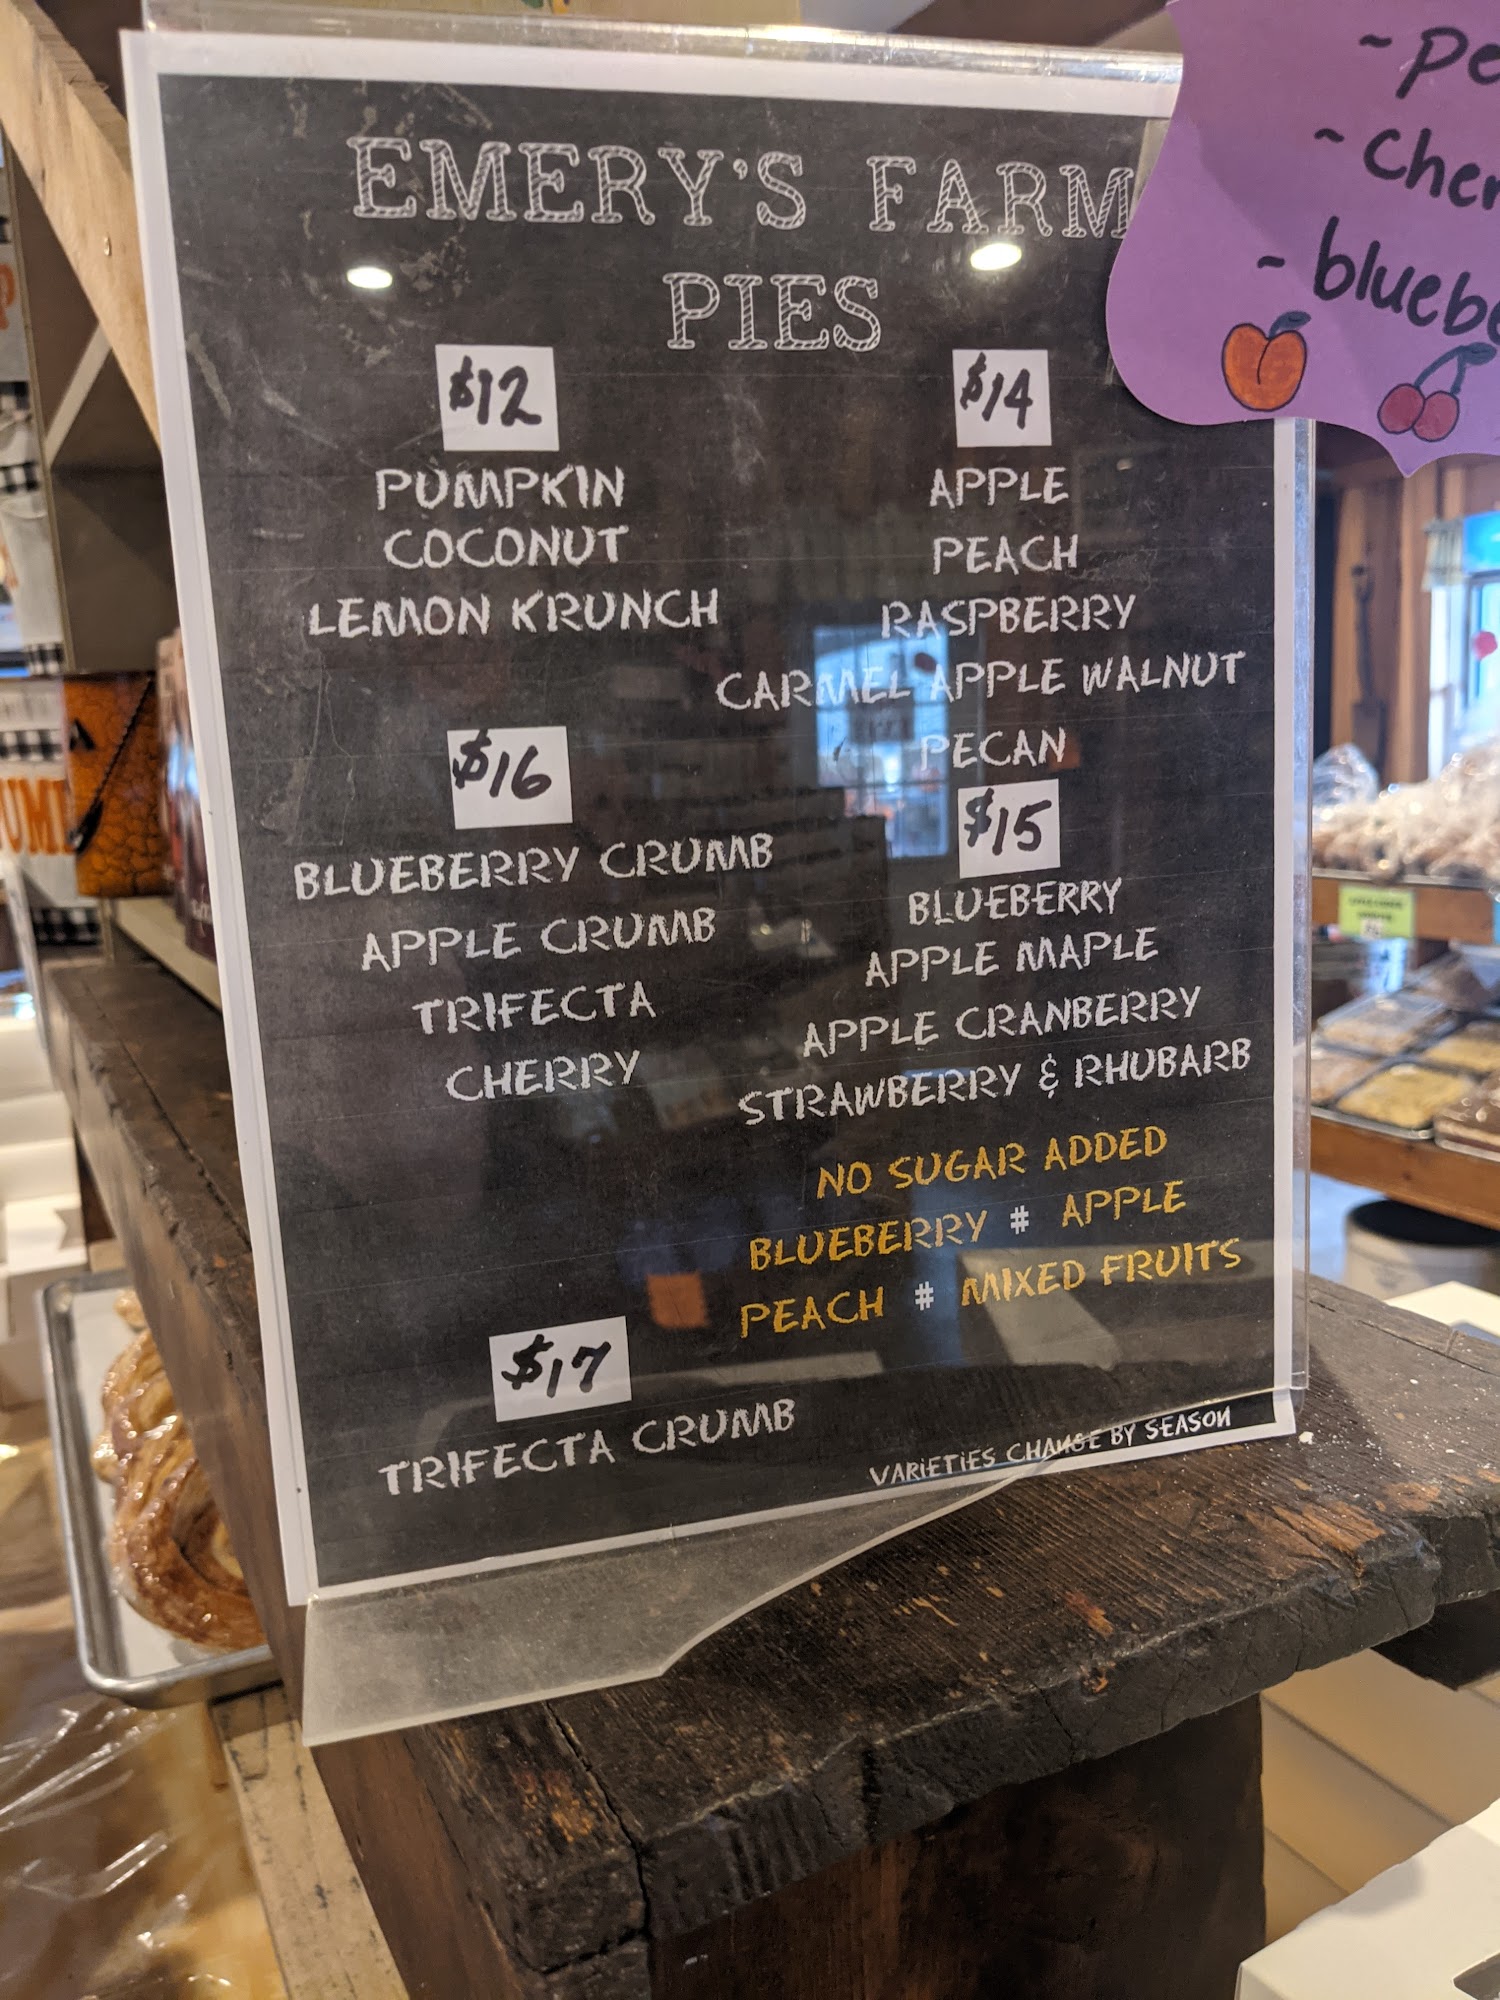 EMERY'S FARM
PIES
$12
PUMPKIN
COCONUT
LEMON KRUNCH
$14
APPLE
PEACH
RASPBERRY
CARMEL APPLE WALNUT
PECAN
$16
BLUEBERRY CRUMB
APPLE CRUMB
TRIFECTA
CHERRY
$15
BLUEBERRY
APPLE MAPLE
APPLE CRANBERRY
STRAWBERRY & RHUBARB
NO SUGAR ADDED
BLUEBERRY # APPLE
PEACH # MIXED FRUITS
$17
TRIFECTA CRUMB
VARIETIES CHANGE BY SEASON
~ pe
~ cher
~ bluebe